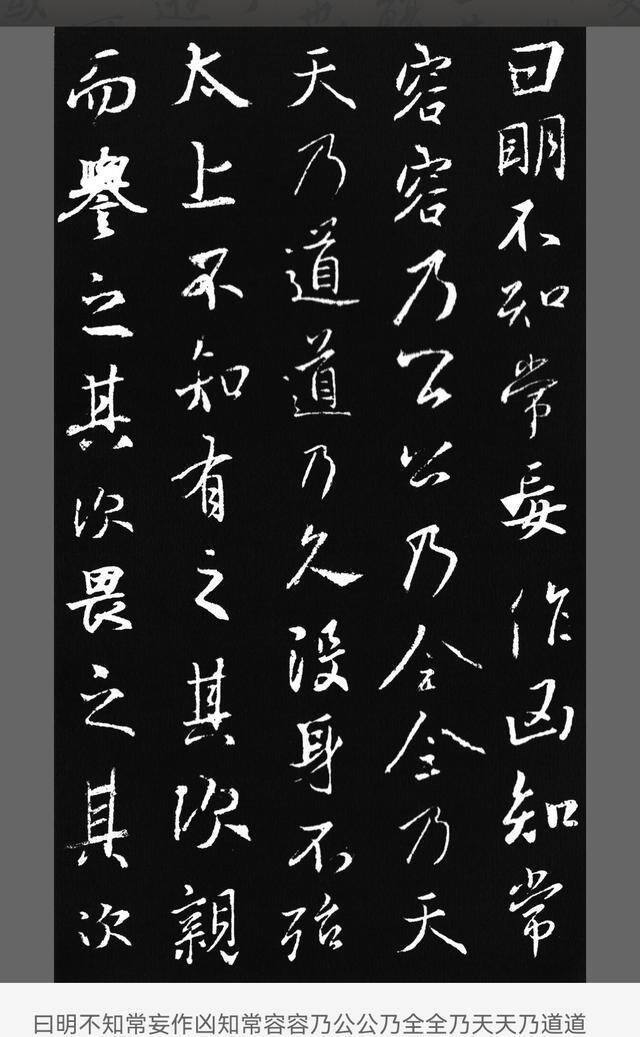 曰明不知常妄作凶知常
容容乃公公乃全全乃天
天乃道道乃久沒身不殆
太上不知有之其次親
而譽之其次畏之其次
曰明不知常妄作凶知常容容乃公公乃全全乃天天乃道道